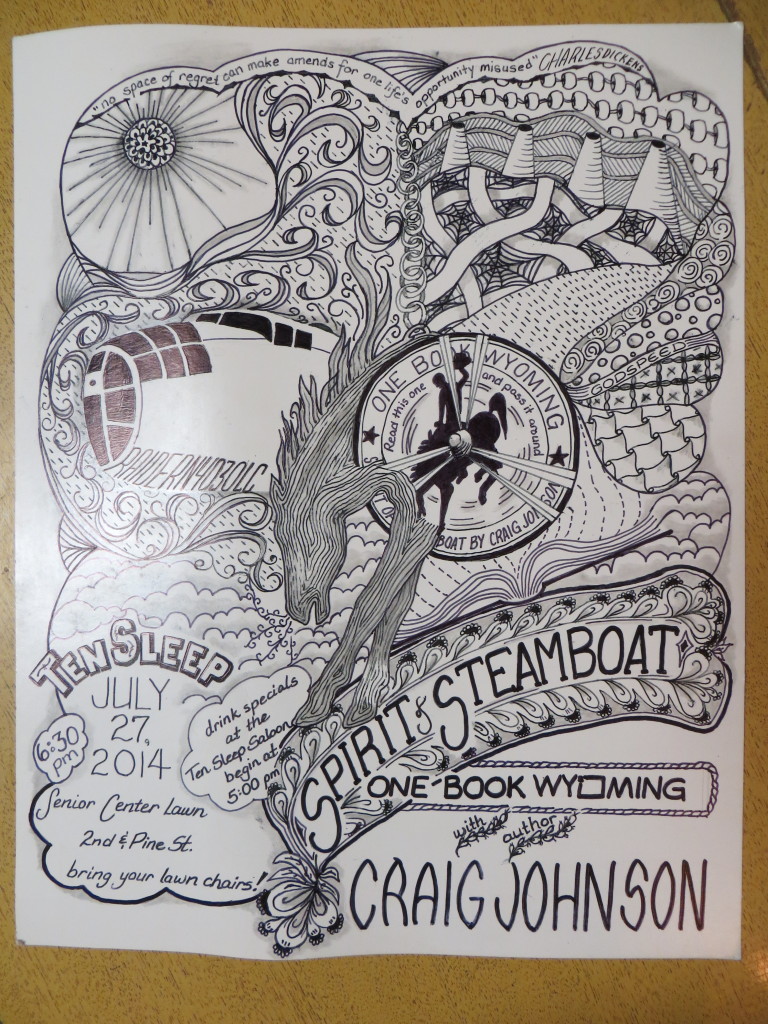 "no space of regret can make amends for one life's opportunity misused" CHARLES DICKENS
ONE BO WYOMING
Read this one and pass it around
BOAT BY CRAIG JOHNSON
TEN SLEEP
JULY
27,
2014
6:30
pm
drink specials
at the
Ten Sleep Saloon
begin at
5:00 pm
Senior Center Lawn
2nd & Pine St.
bring your lawn chairs!
SPIRIT of STEAMBOAT
ONE-BOOK WYOMING
with author
CRAIG JOHNSON